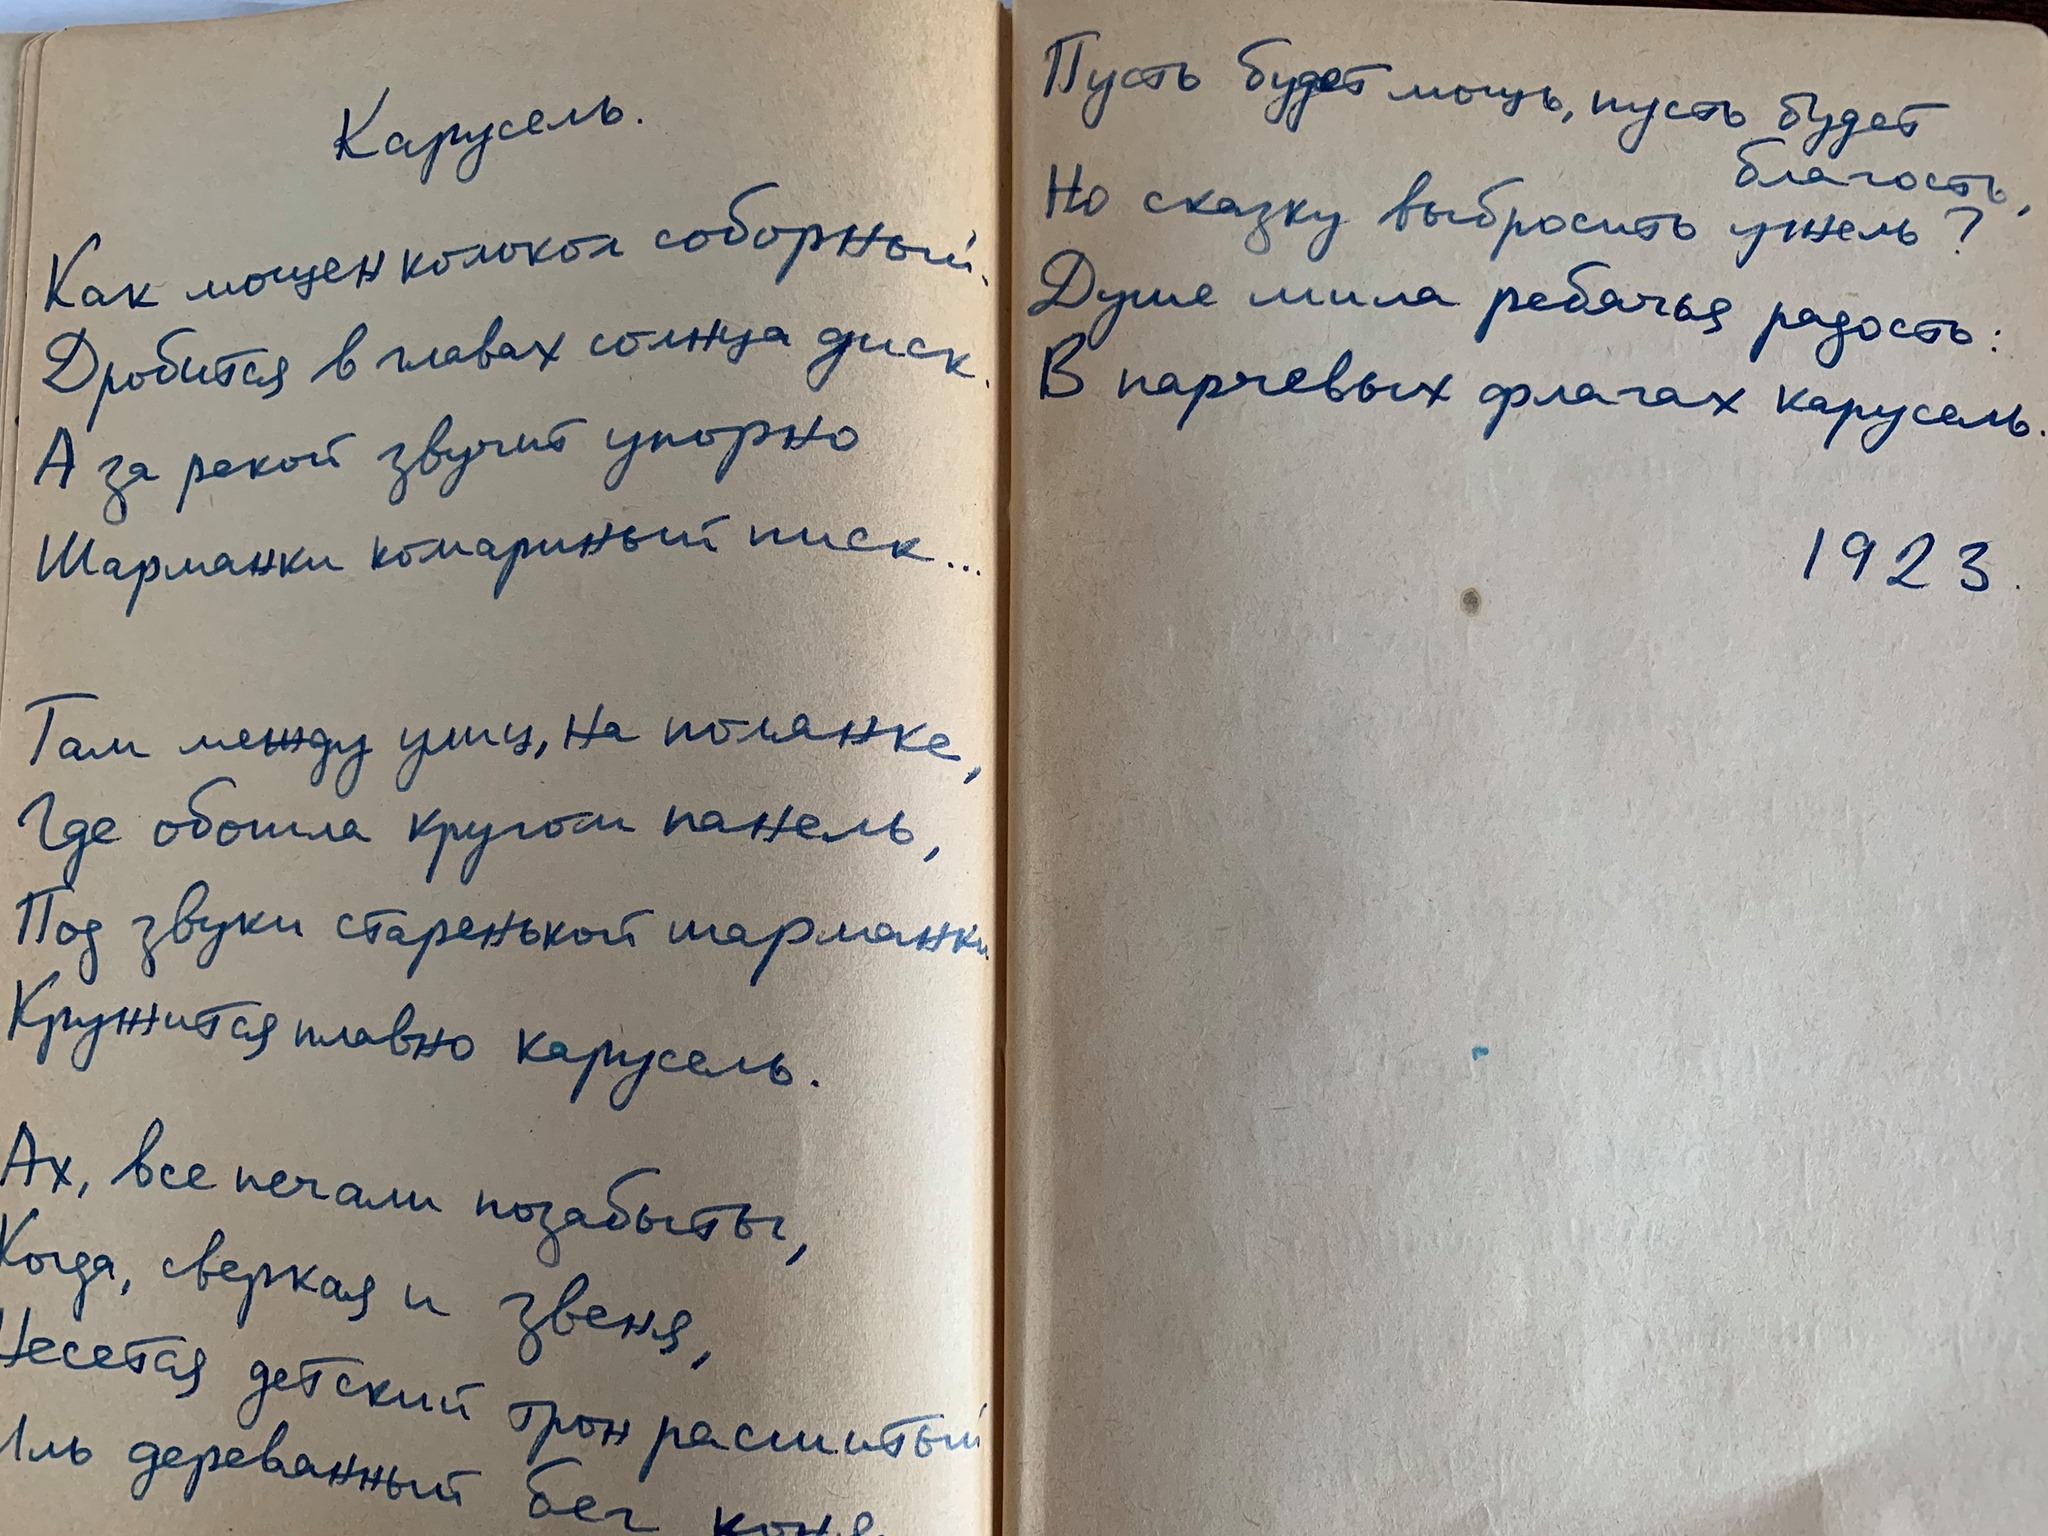 Карусель.
Как мощен колокол соборный.
Дробится в главах солнца диск.
А за рекой звучит упорно
Шарманки комариный писк...
Там между улиц, на полянке,
Где обошла кругом панель,
Под звуки старенькой шарманки
Кружится плавно карусель.
Ах, все печали позабыты,
Когда, сверкая и звеня,
Несется детский трон расшитый
Иль деревянный бег коня.
Пусть будет мощь, пусть будет
благость,
Но сказку выбросить ужель?
Душе мила ребячья радость:
В парчевых флагах карусель.
1923.